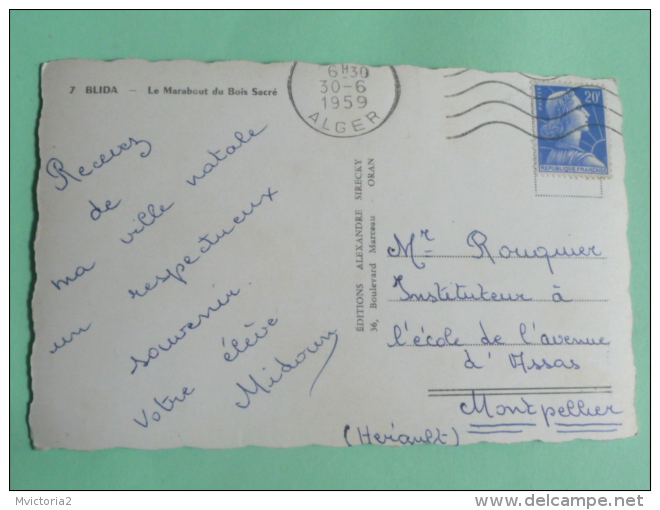 7 BLIDA - Le Marabout du Bois Sacré
6H30
30-6
1959
ALGER
20F
REPUBLIQUE FRANÇAISE
Recevez
de
ma ville natale
un respectueux
souvenir.
Votre élève
Midoun
ÉDITIONS ALEXANDRE SIRECKY
36, Boulevard Marceau ORAN
Mr Rouquier
Instituteur à
l'école de l'avenue
d'Assas
Montpellier
(Hérault)
Mvictoria2
www.delcampe.net